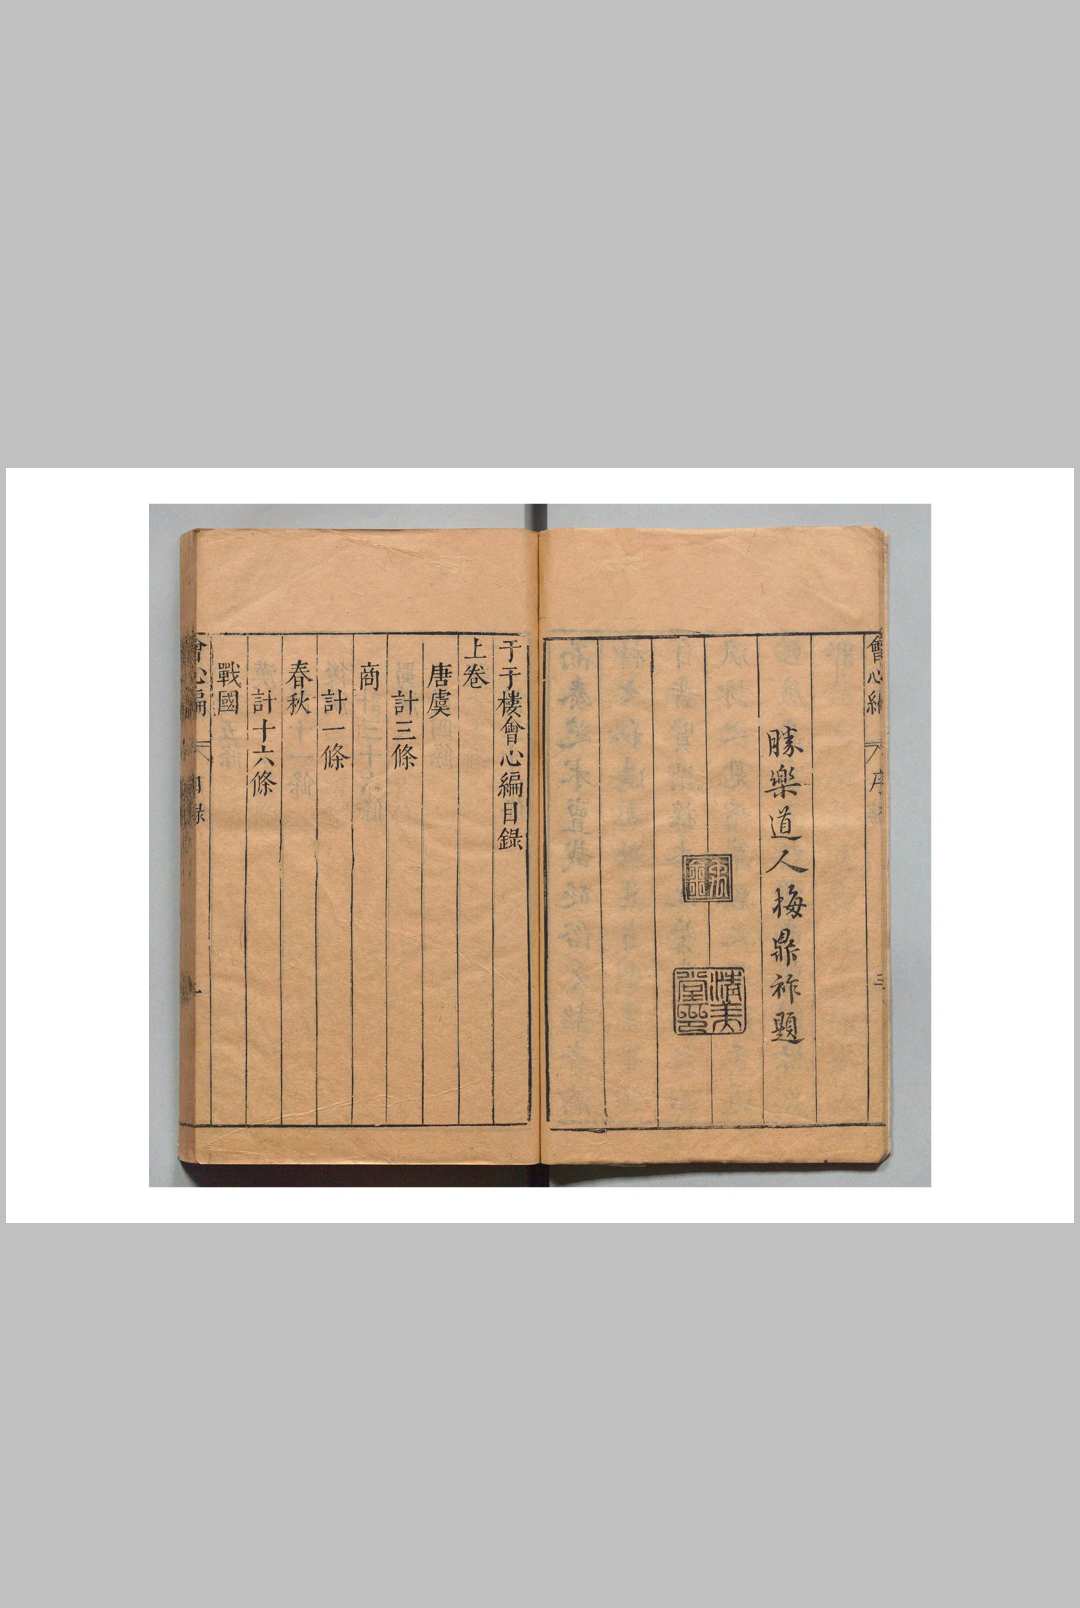 會心編
序
三
勝樂道人梅鼎祚題
禹金
清美堂印
于于樓會心編目錄
上卷
唐虞
計三條
商
計一條
春秋
計十六條
戰國
會心編
目錄